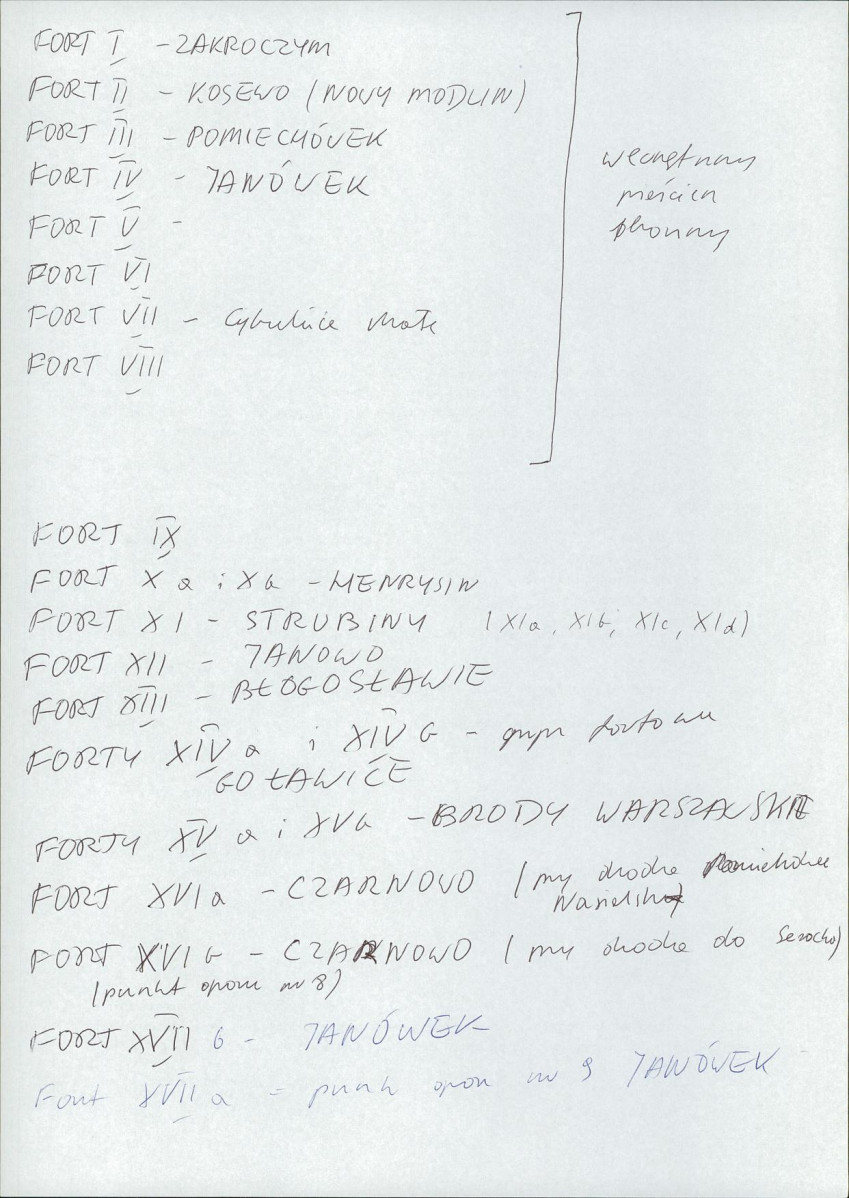 FORT I - ZAKROCZYM
FORT II - KOSEWO (NOWY MODLIN)
FORT III - POMIECHÓWEK
FORT IV - JANÓWEK
FORT V -
FORT VI
FORT VII - Cybulice Małe
FORT VIII
wewnętrzny
pierścień
obronny
FORT IX
FORT X a i X b - HENRYSIN
FORT XI - STRUBINY (XIa, XIb, XIc, XId)
FORT XII - JANOWO
FORT XIII - BŁOGOSŁAWIE
FORTY XIV a i XIV b - grupa fortowa
GOŁAWICE
FORTY XV a i XV b - BRODY WARSZAWSKIE
FORT XVI a - CZARNOWO (przy drodze Pomiechówek
Nasielsk)
FORT XVI b - CZARNOWO (przy drodze do Serocka)
(punkt oporu nr 8)
FORT XVII b - JANÓWEK
Fort XVII a - punkt oporu nr 9 JANÓWEK